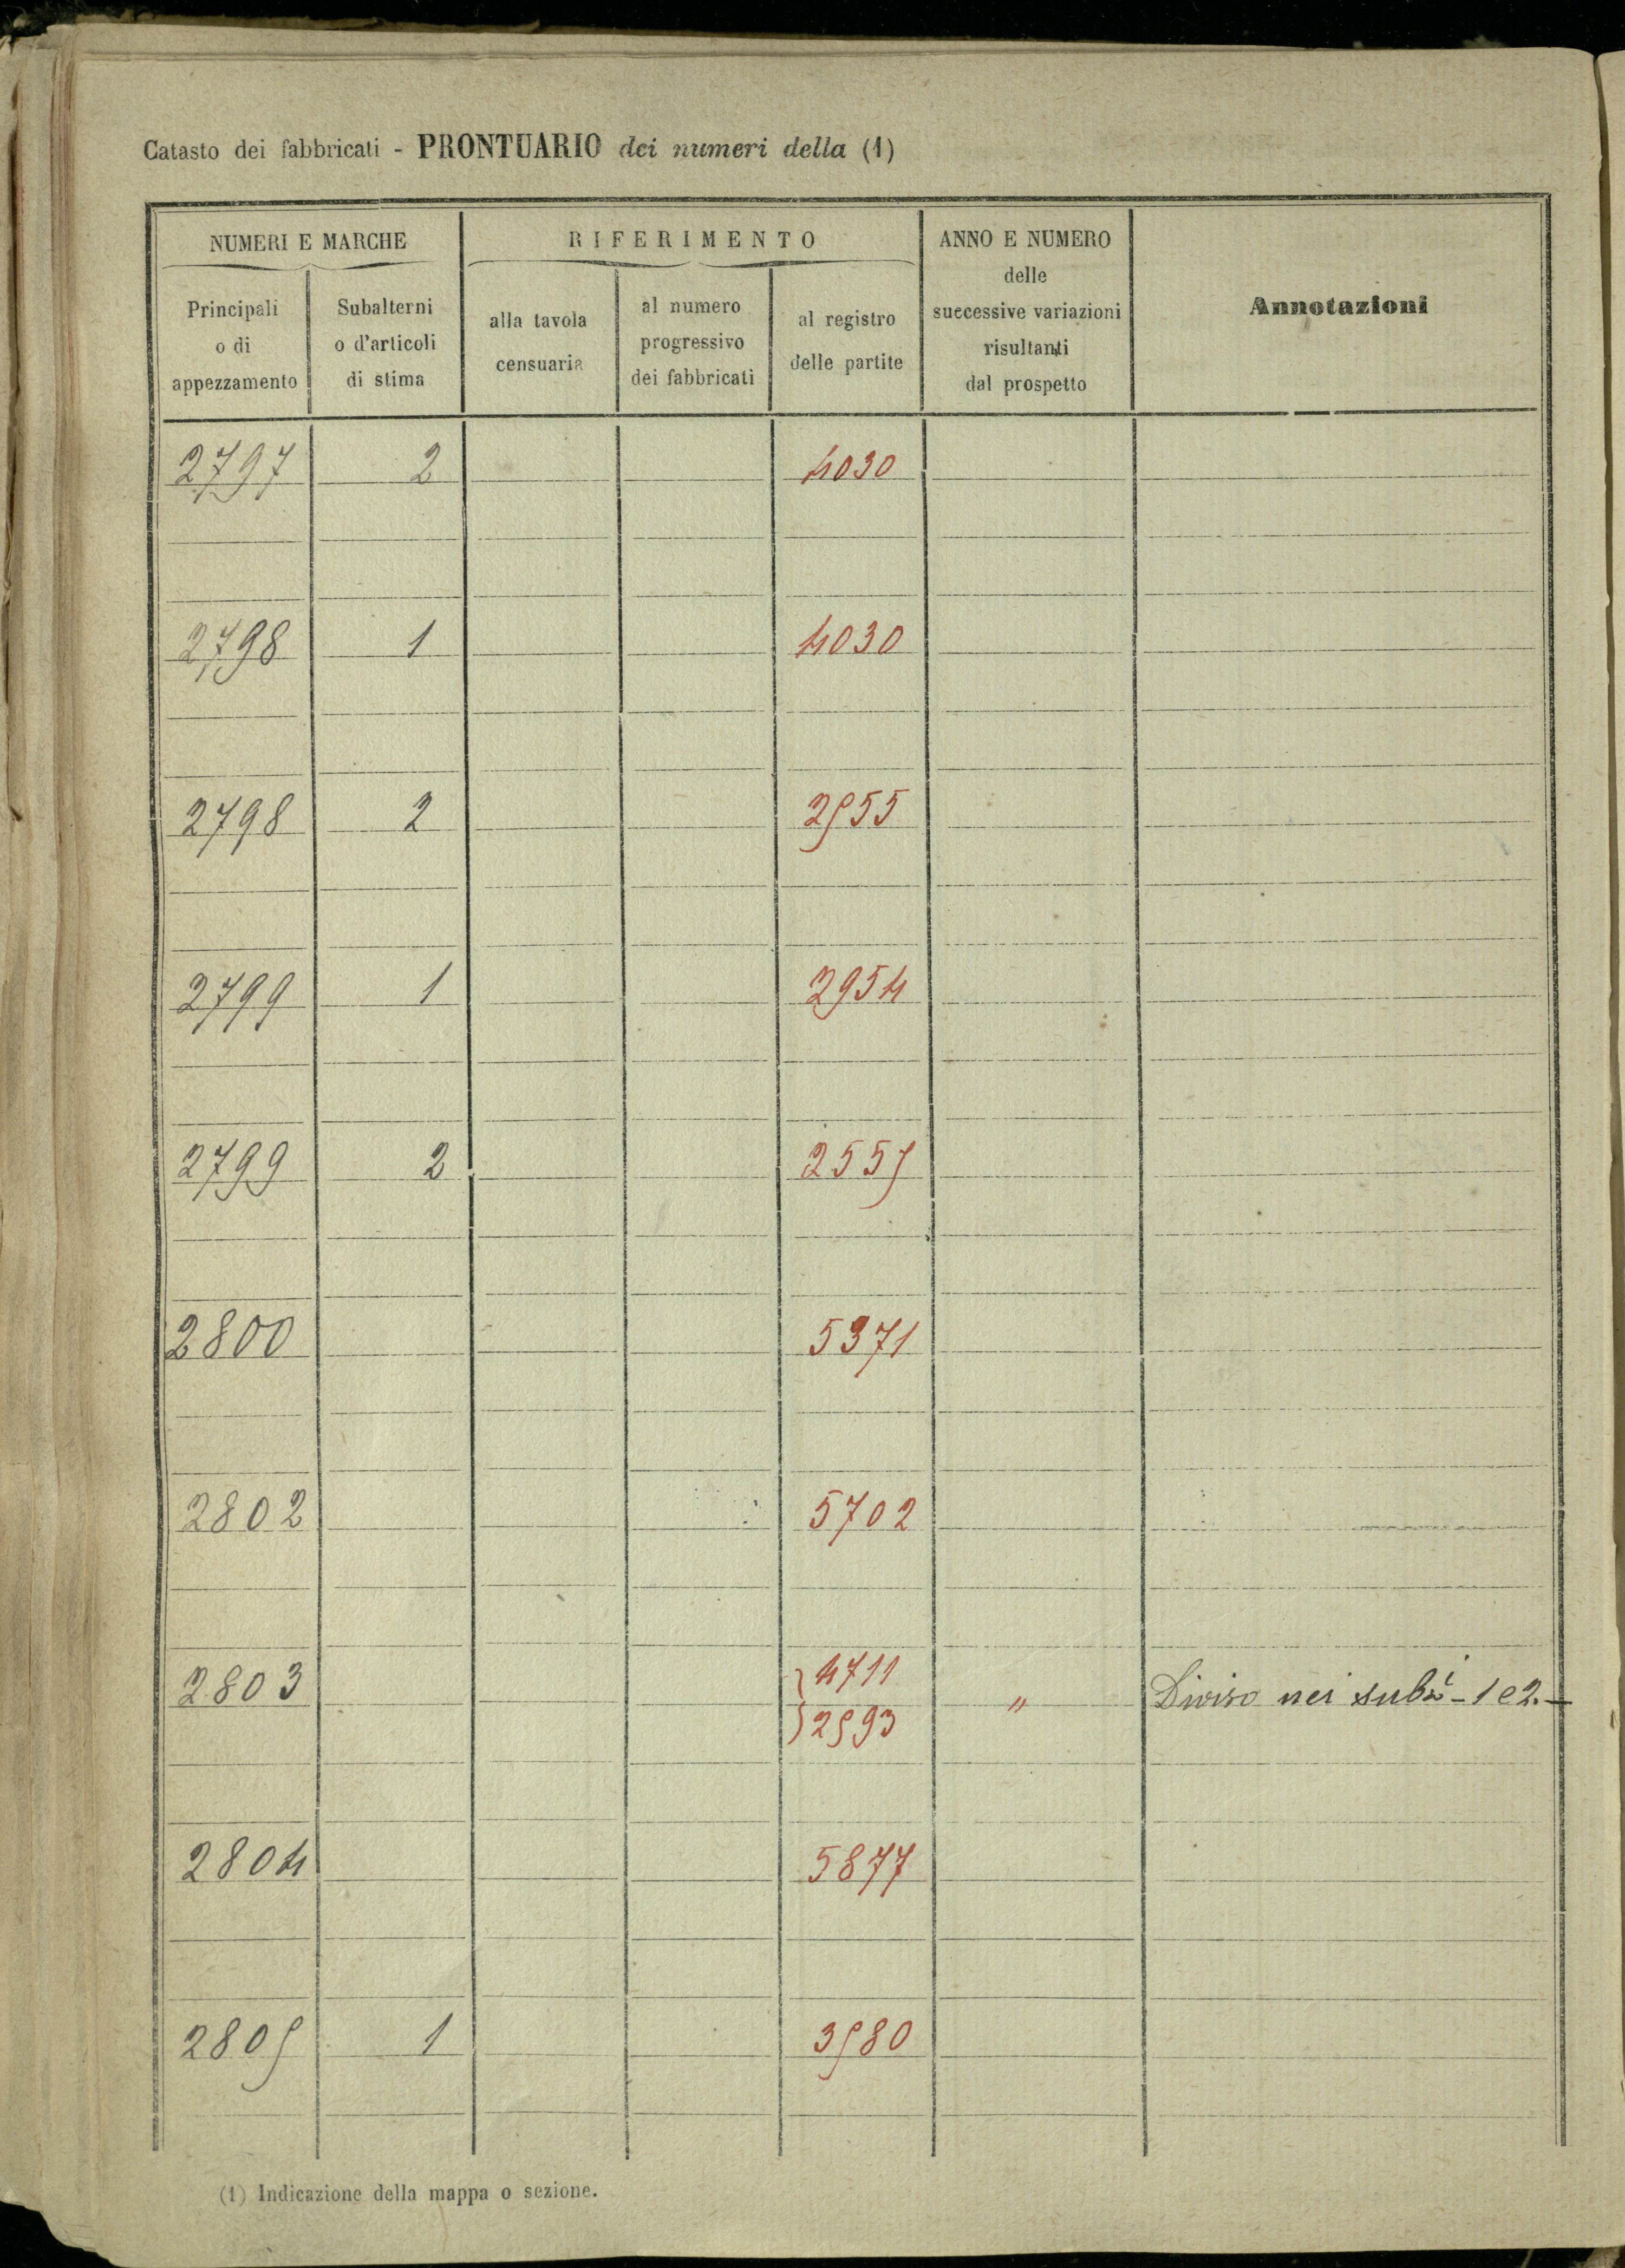 Catasto dei fabbricati - PRONTUARIO dei numeri della (1)
NUMERI E MARCHE
Principali
o di
appezzamento
Subalterni
o d'articoli
di stima
RIFERIMENTO
alla tavola
censuaria
al numero
progressivo
dei fabbricati
al registro
delle partite
ANNO E NUMERO
delle
successive variazioni
risultanti
dal prospetto
Annotazioni
2797 2 4030
2798 1 4030
2798 2 2555
2799 1 2954
2799 2 2555
2800 5371
2802 5702
2803 4711 " Diviso nei subi - 1 e 2. —
2593
2804 5877
2805 1 3580
(1) Indicazione della mappa o sezione.